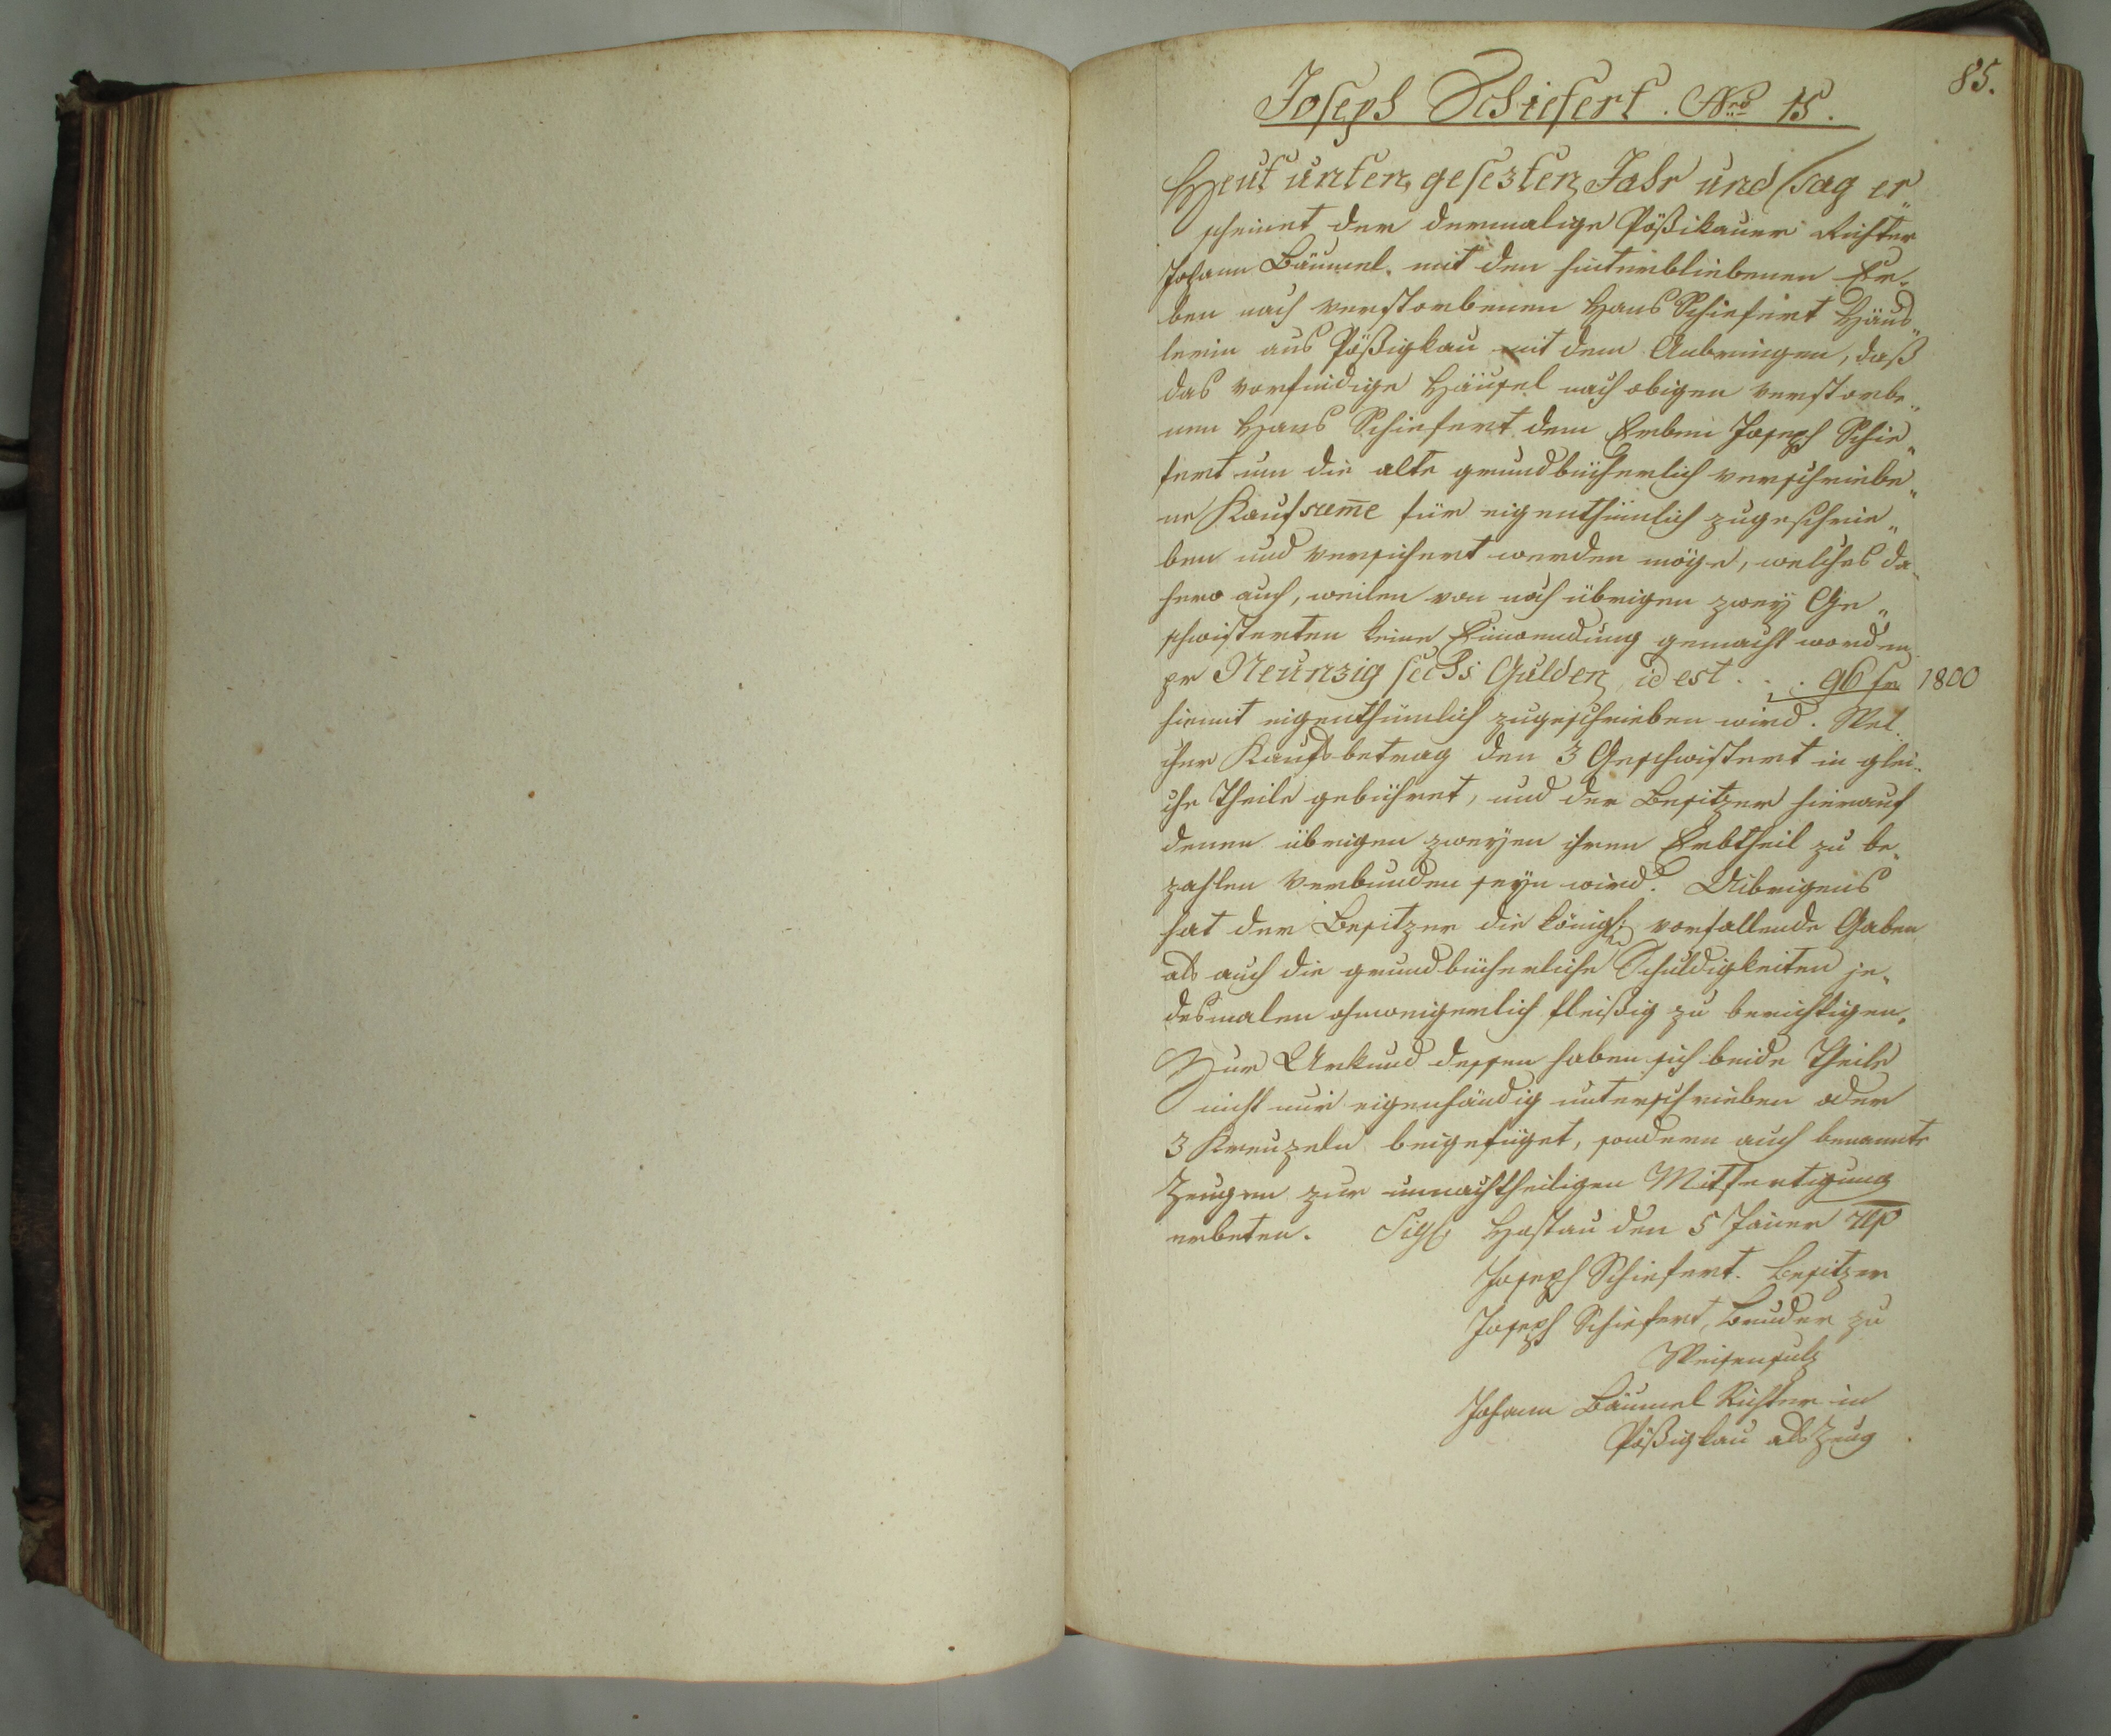 85.
Joseph Schiefert. Nro 15.
Heut unten gesezten Jahr und Tag er„
scheinet der dermalige Pößikauer Richter
Johann Bäumel. mit den hinterbliebenen Er„
ben nach verstorbenen Hans Schiefert Häus„
lerin aus Pößigkau mit dem Anbringen, daß
das vorfindige Häusel nach obigen verstorbe„
nen Hans Schiefert dem Erben Joseph Schie„
fert um die alte grundbücherlich verschriebe„
ne Kaufsum̅e für eigenthümlich zugeschrie„
ben und versichert werden möge, welches da„
hero auch, weilen von noch übrigen zwey Ge„
schwisterten keine Einwendung gemacht worden
pr Neunzig sechs Gulden id est . . . 96 fr 1800
hiemit eigenthümlich zugeschrieben wird. Wel„
cher Kaufsbetrag den 3 Geschwistert in glei„
che Theile gebühret, und der Besitzer hierauf
denen übrigen zweyen ihren Erbtheil zu be„
zahlen verbunden seyn wird. Uibrigens
hat der Besitzer die königl: vorfallende Gaben
als auch die grundbücherliche Schuldigkeiten je„
desmalen ohnweigerlich fleißig zu berichtigen.
Zur Urkund dessen haben sich beide Theile
nicht nur eigenhändig unterschrieben oder
3 Kreuzeln beigefüget, sondern auch benannte
Zeugen zur unnachtheiligen Mitfertigung
erbeten. Sigl. Hostau den 5 Jäner
Joseph Schiefert. Besitzer
Joseph Schiefert, Bruder zu
Weisensulz
Johann Bäumel Richter in
Pößigkau als Zeug